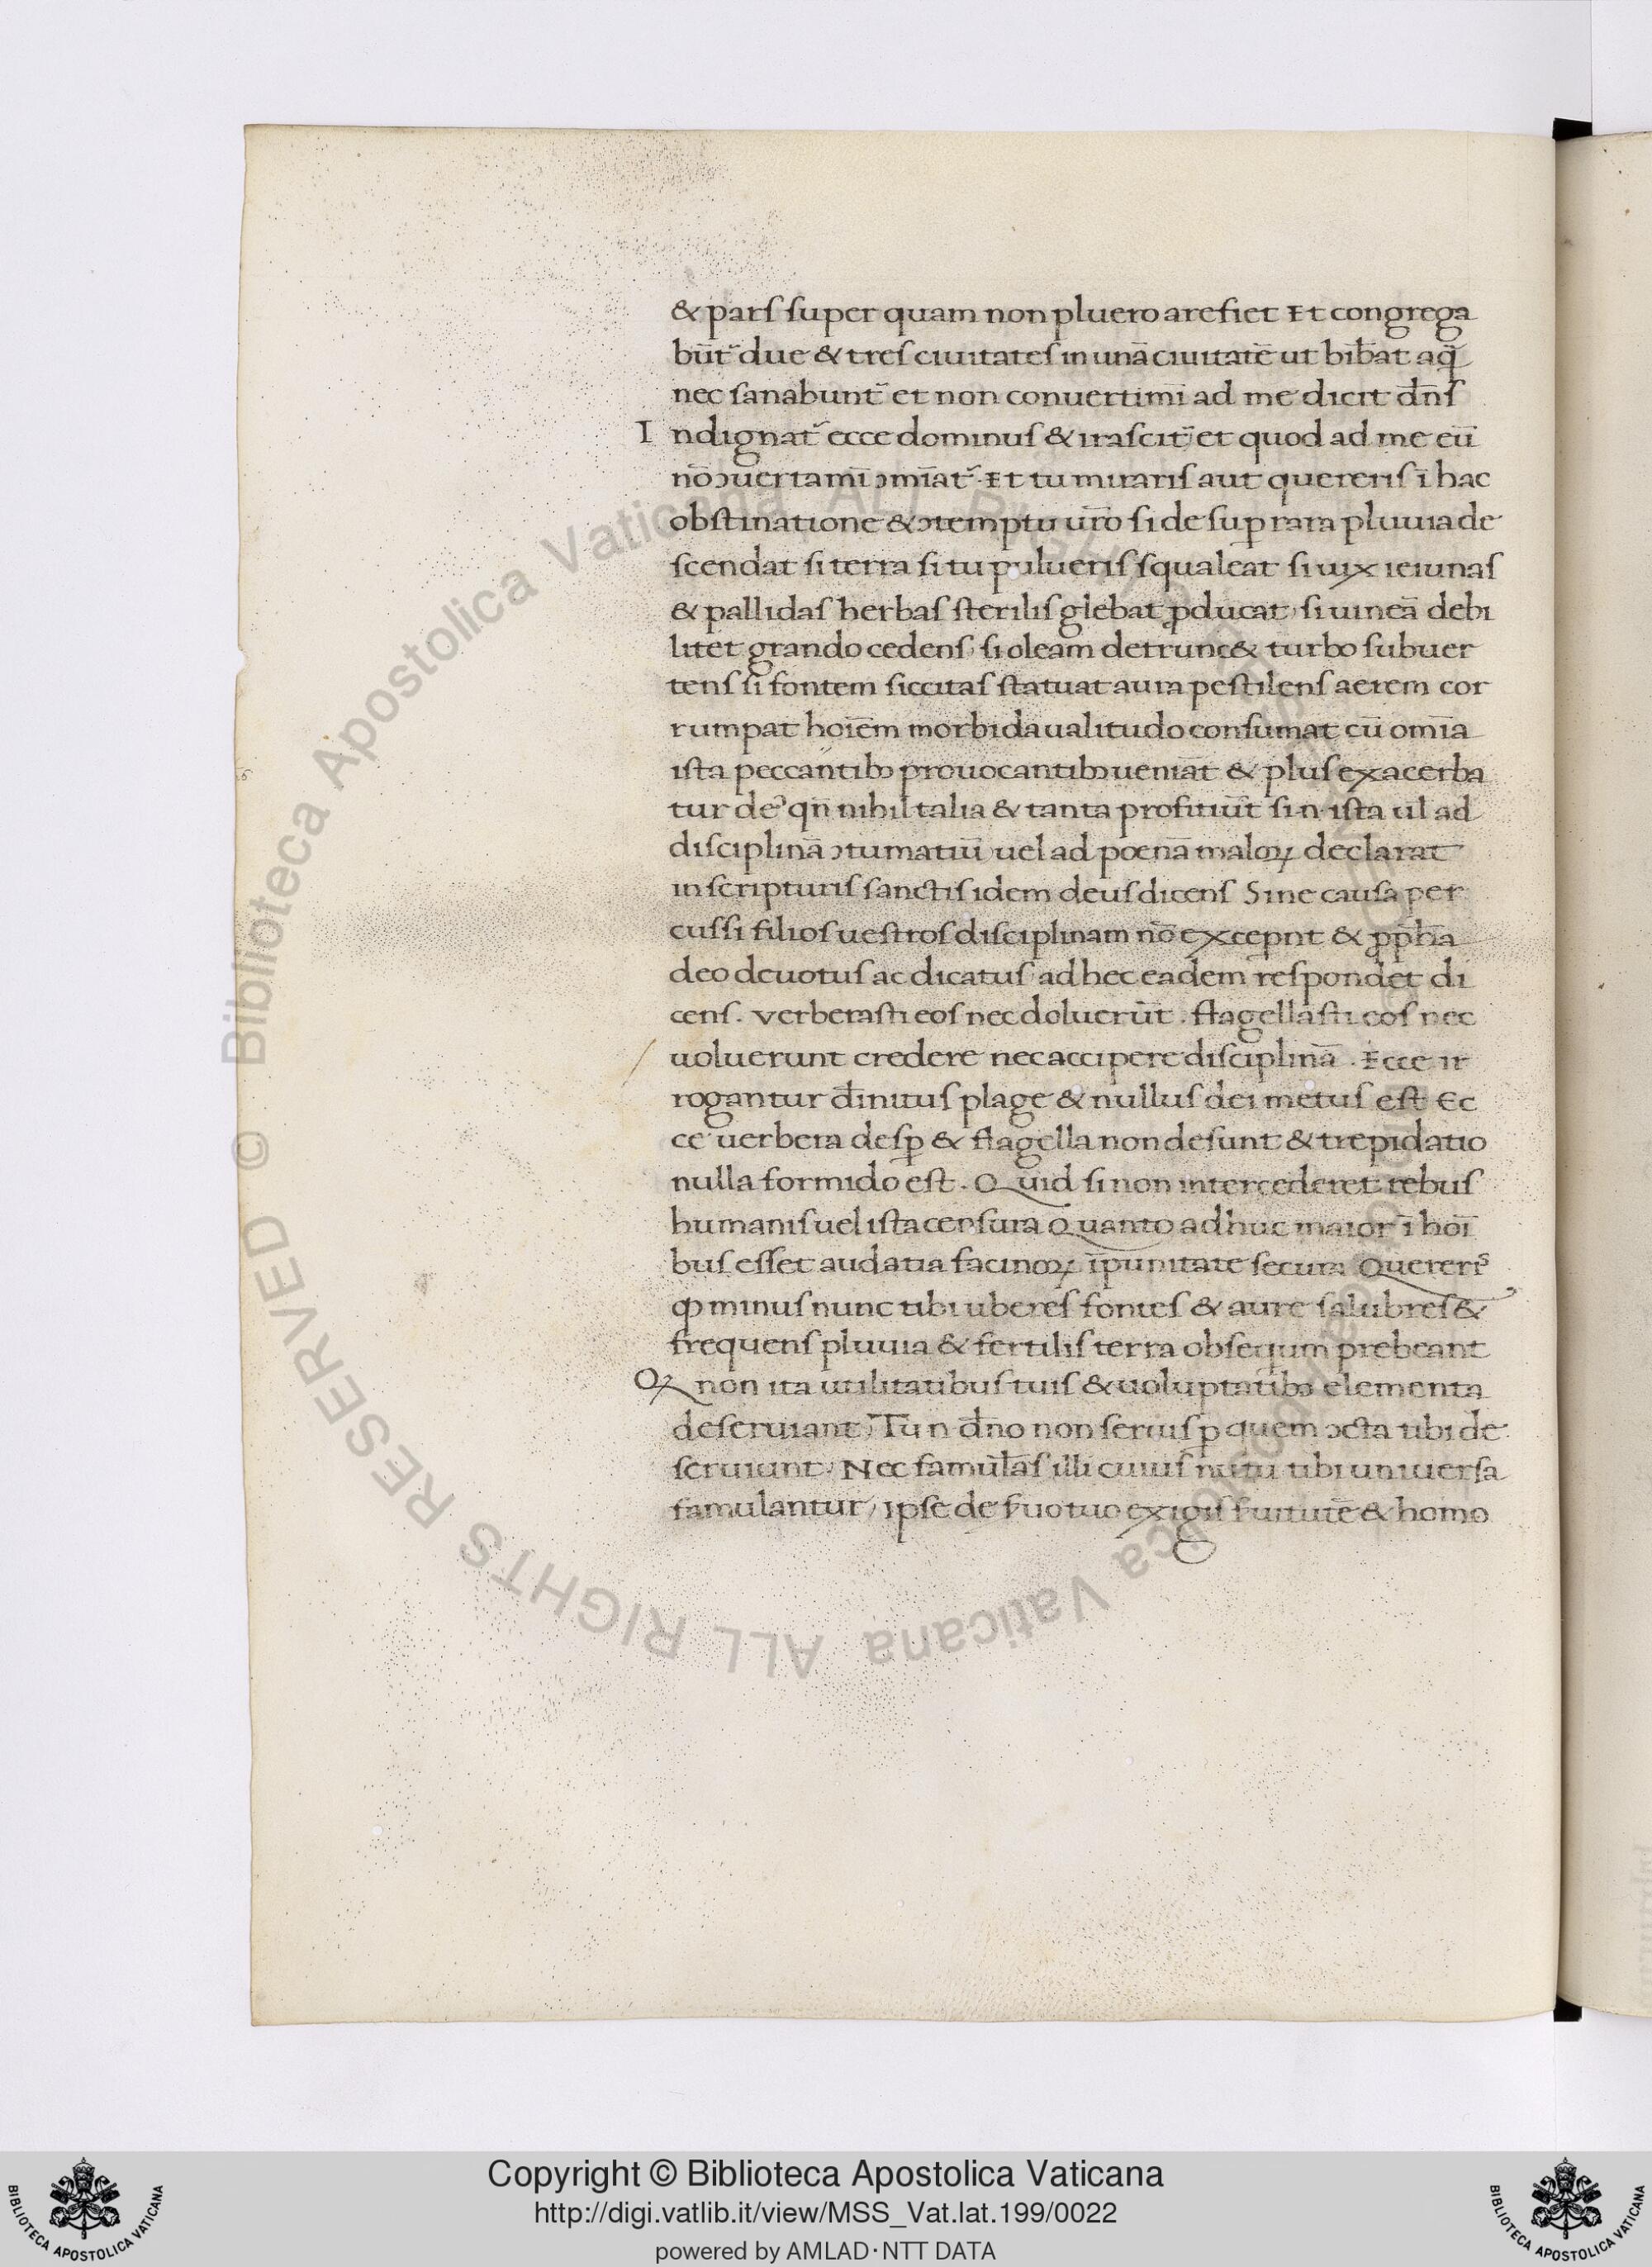 & pars super quam non pluero arefiet Et congrega
būt᷑ due & tres ciuitates in unā ciuitatē ut bibāt aq̄
nec sanabunt᷑ et non conuertimī ad me dicit dn̄s
Indignat᷑ ecce dominus & irascit᷑ et quod ad me eū
nō ↄuertamī ↄmīat᷑. Et tu miraris aut quereris ī hac
obstinatione & ↄtemptu ur̄o si de sup̱ rara pluuia de
scendat si terra situ pulueris squaleat si uix ieiunas
& pallidas herbas sterilis glebat ꝓducat, si uineā debi
litet grando cedens, si oleam detrunc& turbo subuer
tens si fontem siccitas statuat aura pestilens aerem cor
rumpat hoīem morbida ualitudo consumat cū omīa
ista peccantibꝫ prouocantibꝫ ueniāt & plus exacerba
tur de᷒ qn̄ nihil talia & tanta profitiūt si .n. ista ul̄ ad
disciplinā ↄtumatiū uel ad poenā maloꝝ declarat
in scripturis sanctis idem deus dicens Sine causa per
cussi filios uestros disciplinam nō excep̱nt & ꝓph̄a
deo deuotus ac dicatus ad hec eadem respondet di
cens. verberasti eos nec doluerūt. flagellasti eos nec
uoluerunt credere nec accipere disciplinā. Ecce ir
rogantur dīnitus plage & nullus dei metus est Ec
ce uerbera desup̱ & flagella non desunt & trepidatio
nulla formido est. Quid si non intercederet rebus
humanis uel ista censura Quanto adhuc maior ī hoī
bus esset audatia facinoꝝ īpunitate secura Quereris
ꝙ minus nunc tibi uberes fontes & aure salubres &
frequens pluuia & fertilis terra obsequium prebeant
Qꝫ non ita utilitatibus tuis & uoluptatibꝫ elementa
deseruiant, Tu .n. dn̄o non seruis p̱ quem ↄcta tibi de
seruiunt. Nec famulās illi cuius nutu tibi uniuersa
famulantur, ipse de ẜuo tuo exigis ẜuitutē & homo
Copyright © Biblioteca Apostolica Vaticana
http://digi.vatlib.it/view/MSS_Vat.lat.199/0022
powered by AMLAD·NTT DATA
BIBLIOTECA APOSTOLICA VATICANA
BIBLIOTECA APOSTOLICA VATICANA
© Biblioteca Apostolica Vaticana ALL RIGHTS RESERVED
© Biblioteca Apostolica Vaticana ALL RIGHTS RESERVED